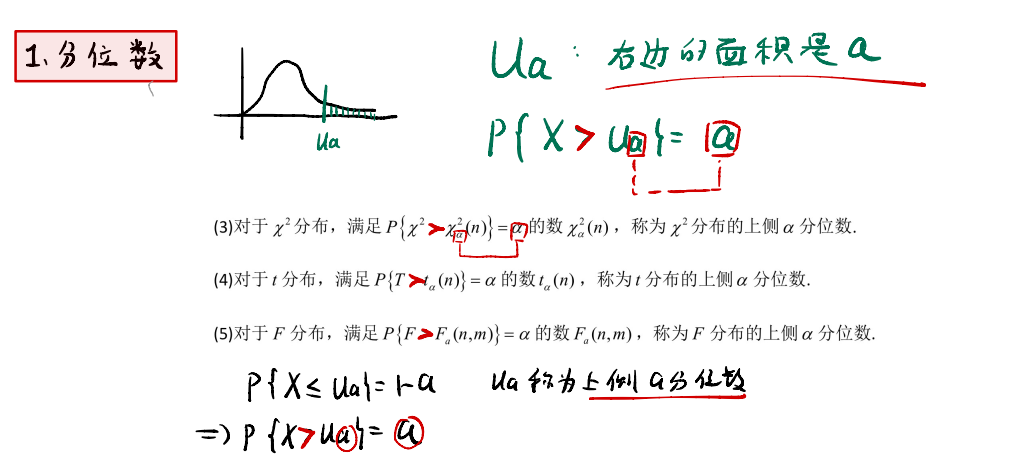 1.分位数
Ua
Ua : 右边的面积是a
P{X>Ua}=a
(3)对于χ²分布，满足P{χ²>χ²_α(n)}=α的数χ²_α(n)，称为χ²分布的上侧α分位数.
(4)对于t分布，满足P{T>t_α(n)}=α的数t_α(n)，称为t分布的上侧α分位数.
(5)对于F分布，满足P{F>F_α(n,m)}=α的数F_α(n,m)，称为F分布的上侧α分位数.
P{X≤Ua}=1-a Ua称为上侧a分位数
=>P{X>Ua}=a